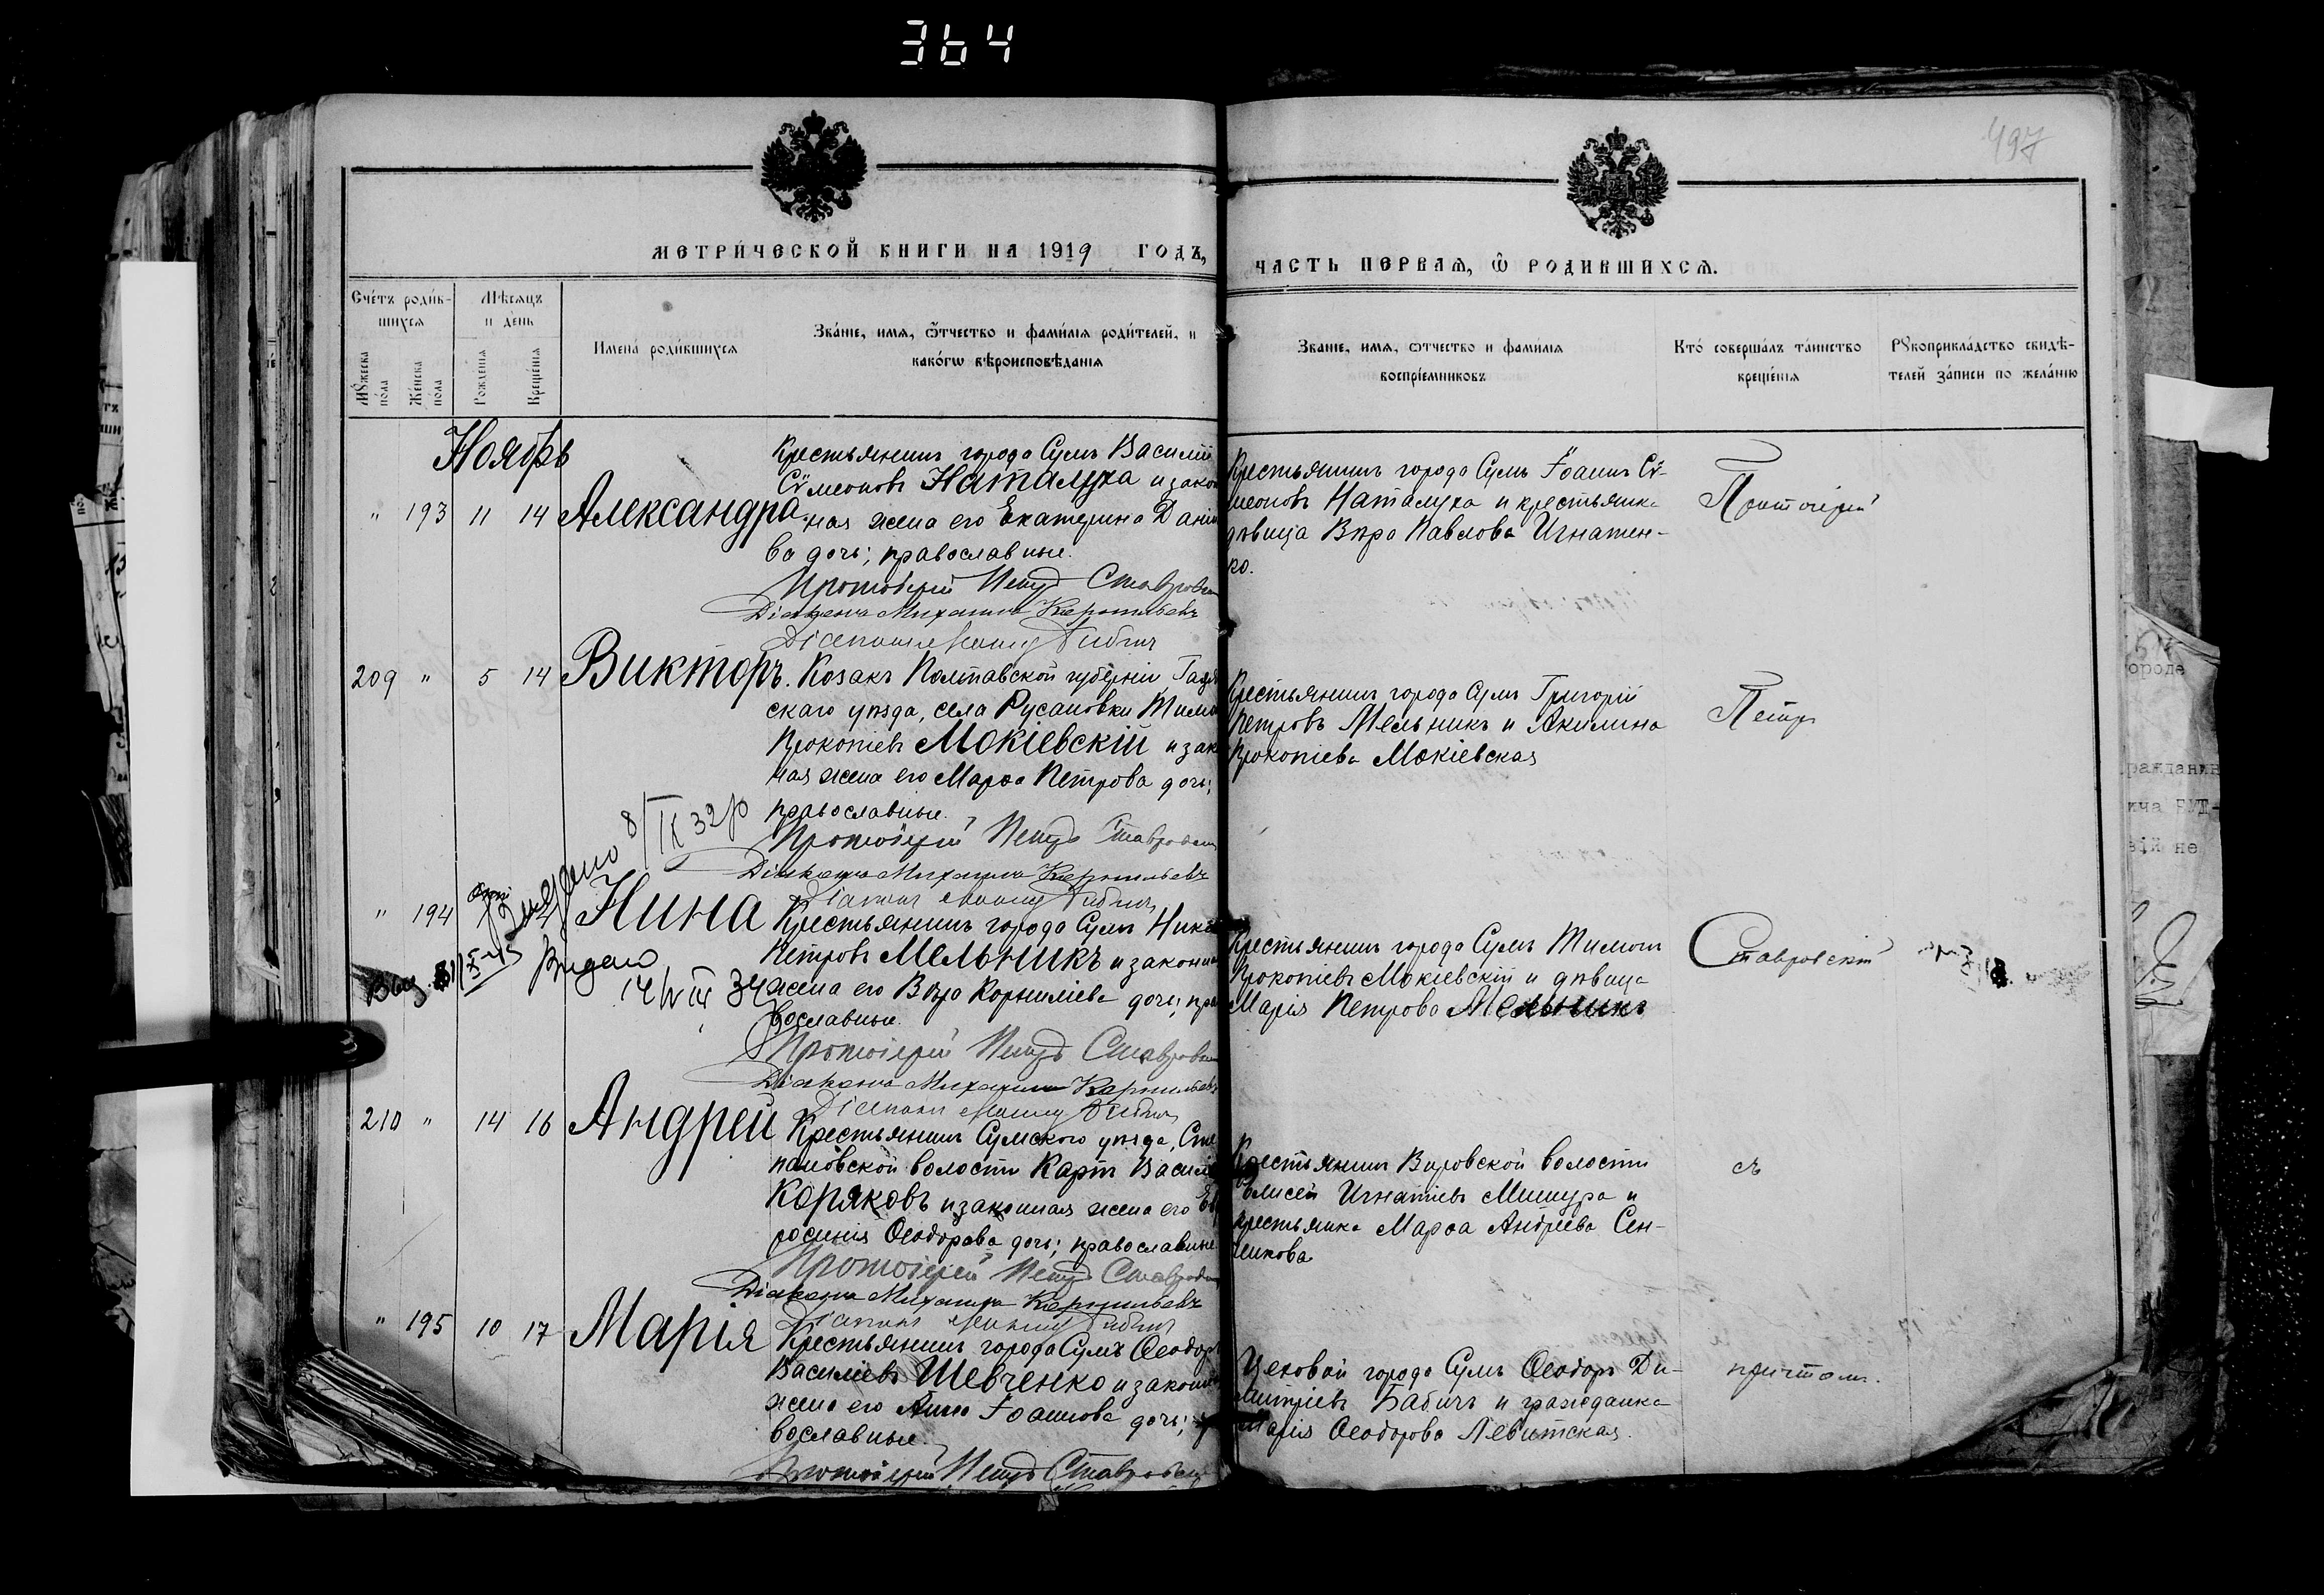 364
497
МЕТРИ́ЧЕСКОЙ КНИГИ НА 1919 ГОДЪ,
ЧАСТЬ ПЕРВАЯ, Ѡ РОДИВШИХСЯ.
Сче́тъ роди́в-
шихся
Мѣсяцъ
и де́нь
Му́жеска
по́ла
Же́нска
по́ла
Рожде́нія
Креще́нія
Имена́ роди́вшихся
Зва́ніе, имя, о́тчество и фами́лія роди́телей, и
како́гѡ вѣроисповѣ́данія
Званіе, имя, отчество и фами́лія
воспріе́мниковъ
Кто́ соверша́лъ та́инство
креще́нія
Рукоприкла́дство свидѣ́-
телей за́писи по жела́нію
Ноябрь
" 193 11 14 Александра
Крестьянинъ города Сумъ Василій
Сѵмеоновъ Наталуха и закон
ная жена его Екатерина Даніи
ва дочь; православные.
Протоіерей Петръ Ставровскі
Діаконъ Михаилъ Корнильевъ
Діаконъ
Крестьянинъ города Сумъ Іоаннъ Сѵ-
меоновъ Наталуха и крестьянка
дѣвица Вѣра Павлова Игнатен-
ко.
Протоіерей
209 " 5 14 Викторъ.
Козакъ Полтавской губерніи Гадя
скаго уѣзда, села Русановки Тимо
Прокопіевъ Мокіевскій и зак
ная жена его Марѳа Петрова дочь;
православные.
Протоіерей Петръ Ставровскі
Діаконъ Михаилъ Корнильевъ
Діаконъ
Крестьянинъ города Сумъ Григорій
Петровъ Мельникъ и Акилина
Прокопіева Мокіевская
Петръ
8/IX 32
" 194 Нина
Крестьянинъ города Сумъ Нико
Петровъ Мельникъ и законна
жена его Вѣра Корниліева дочь; пра
вославные.
Протоіерей Петръ Ставровскі
Діаконъ Михаилъ Корнильевъ
Діаконъ
Видано
34
Крестьянинъ города Сумъ Тимоѳей
Прокопіевъ Мокіевскій и дѣвица
Марія Петрова Мельникъ
Ставровскій
210 " 14 16 Андрей
Крестьянинъ Сумского уѣзда, Сте
пановской волости Карпъ Василі
Коряковъ и законная жена его Ев
росинія Ѳеодорова дочь; православные
Протоіерей Петръ Ставровскі
Діаконъ Михаилъ Корнильевъ
Діаконъ
Крестьянинъ Вировской волости
Елисей Игнатіевъ Мишура и
крестьянка Марѳа Андреева Сен-
никова
съ
" 195 10 17 Марія
Крестьянинъ города Сумъ Ѳеодоръ
Василіевъ Шевченко и законна
жена его Анна Іоаннова дочь; пра
вославные.
Протоіерей Петръ Ставровскі
Цеховой города Сумъ Ѳеодоръ Ди-
митріевъ Бабичъ и гражданка
Марія Ѳеодорова Левитская.
причтомъ.
ороде
ражданин
ича